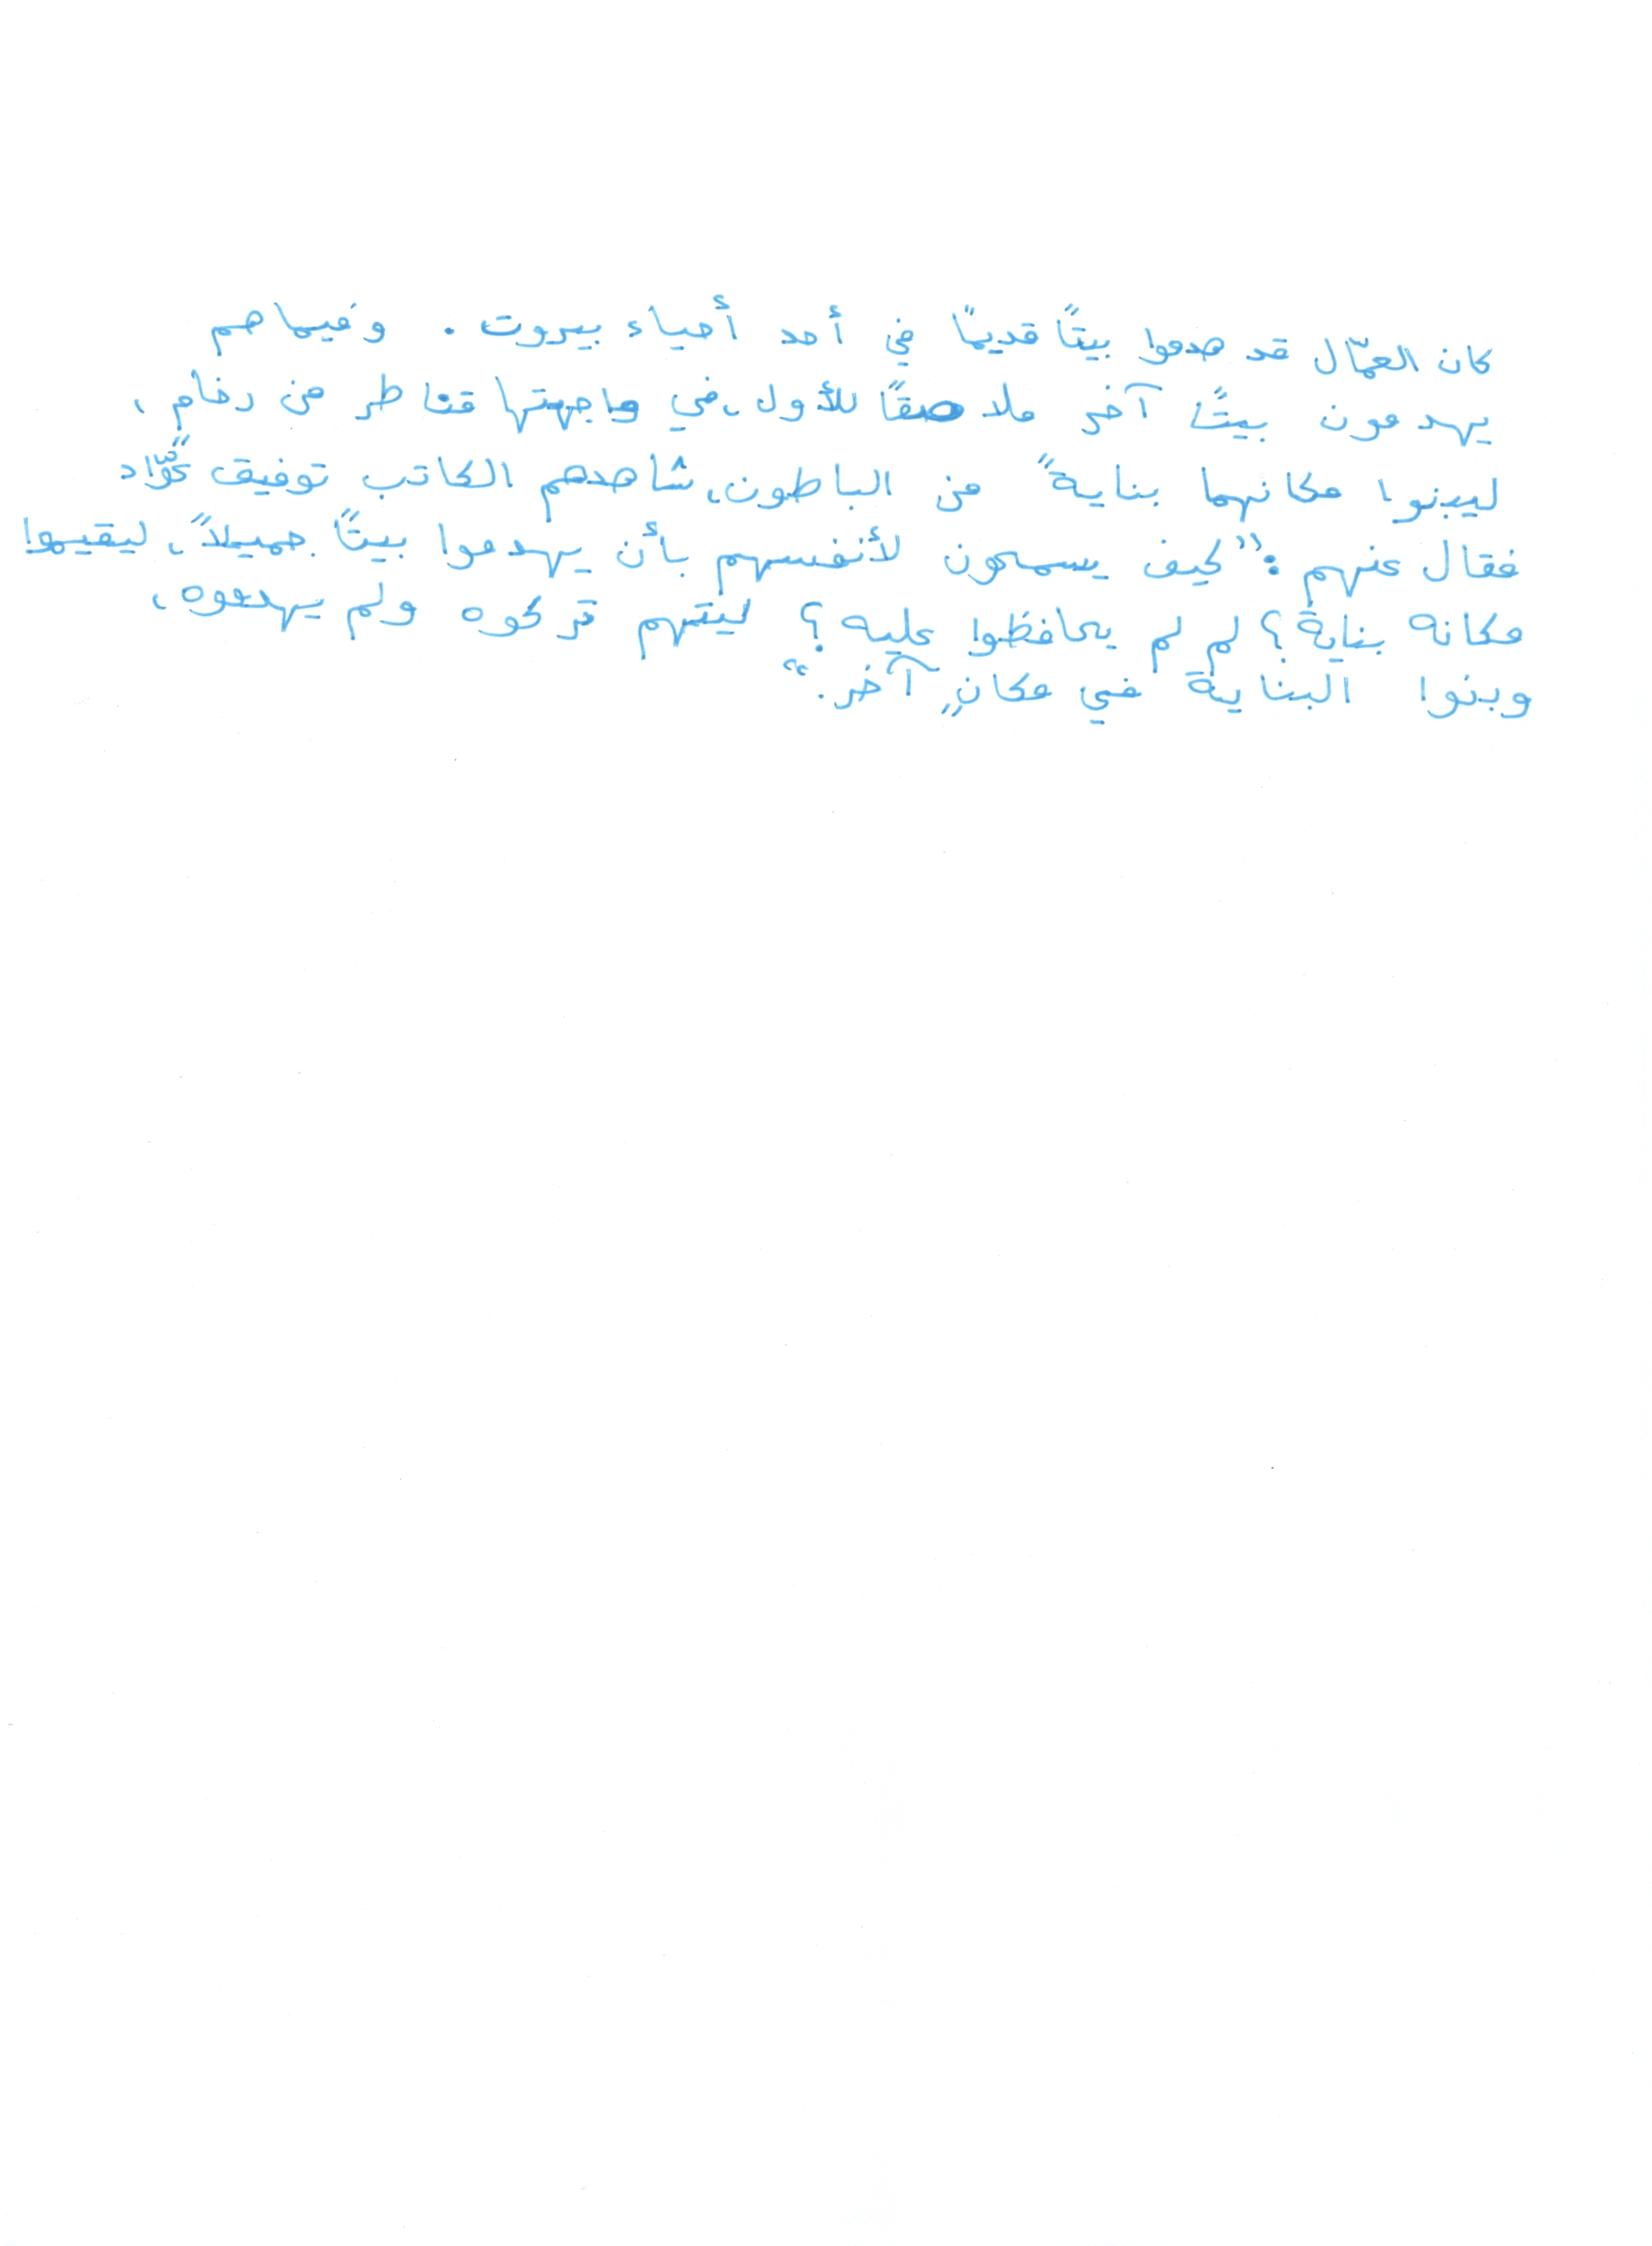 كان العمّال قد هدموا بيتًا قديمًا في أحد أحياء بيروت. وفيما هم
يهدمون بيتًا آخر ملاصقًا للأول، في واجهتها قناطر من رخام،
ليبنوا مكانهما بنايةً من الباطون، شاهدهم الكاتب توفيق عوّاد
فقال عنهم: "كيف يسمحون لأنفسهم بأن يهدموا بيتًا جميلاً، ليقيموا
مكانه بناية؟ لم لم يحافظوا عليه؟ ليتهم تركوه ولم يهدموه،
وبنوا البناية في مكانٍ آخر."